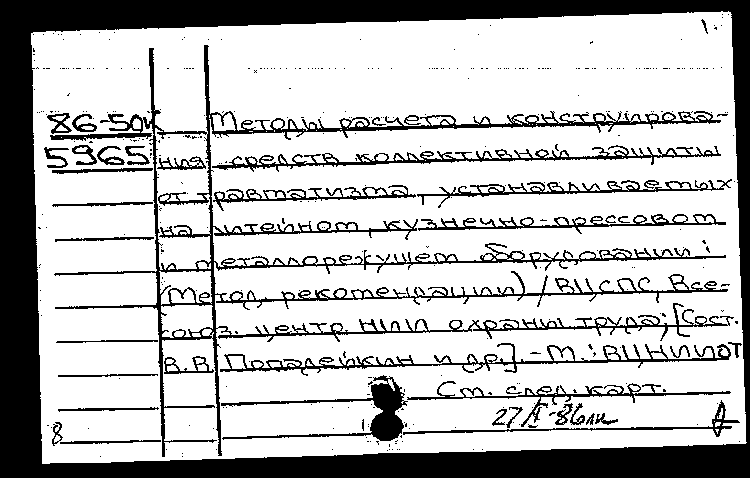 1.
86-50к Методы расчета и конструирова-
5965 ния средств коллективной защиты
от травматизма, устанавливаемых
на литейном, кузнечно-прессовом
и металлорежущем оборудовании:
(Метод. рекомендации) / ВЦСПС, Все-
союз. центр. НИИ охраны труда; [Сост.
В.В. Попадейкин и др.]. - М.: ВЦНИИОТ
См. след. карт.
8